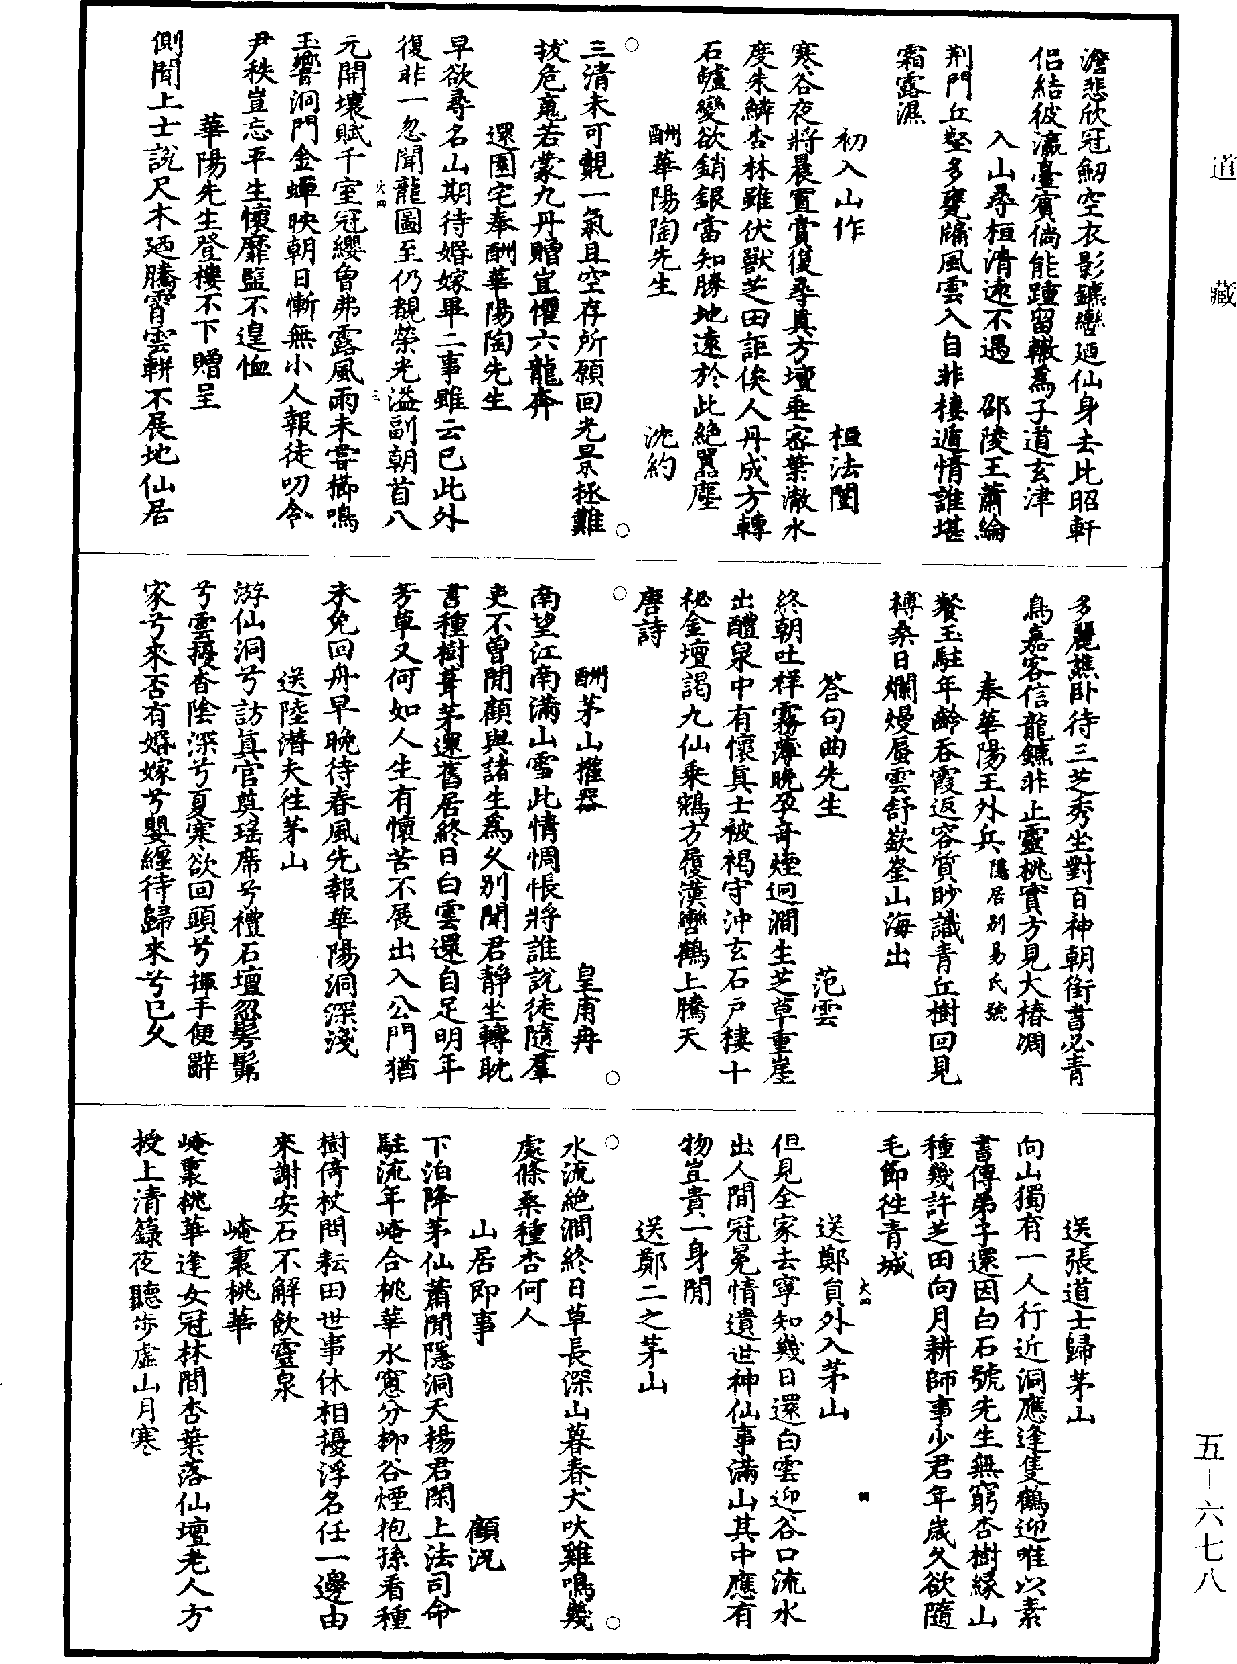 道藏
澹悲欣冠劒空衣影鑣轡廼仙身去比昭軒
侣結彼瀛臺賓倘能踵留轍爲子道玄津
入山尋桓清遠不遇　邵陵王蕭綸
荆門丘壑多甕牖風雲入自非棲遁情誰堪
霜露濕
初入山作　桓法闓
寒谷夜將晨置賞復尋真方壇垂密葉澈水
度朱鱗杏林雖伏獸芝田詎俟人丹成方轉
石爐變欲銷銀當知勝地遠於此絶囂塵
酬華陽陶先生　沈約
三清未可覿一氣且空存所願回光景拯難
拔危䰟若蒙九丹贈豈懼六龍奔
還園宅奉酬華陽陶先生
早欲尋名山期待婚嫁畢二事雖云已此外
復非一忽聞龍圖至仍覩榮光溢副朝首八
元開壤賦千室冠纓曾弗露風雨未嘗櫛鳴
玉響洞門金蟬映朝日慚無小人報徒叨令
尹秩豈忘平生懷靡監不遑恤
華陽先生登樓不下贈呈
側聞上士說尺木廼騰霄雲軿不展地仙居
多麗譙卧待三芝秀坐對百神朝銜書必青
鳥嘉客信龍鑣非止靈桃實方見大椿凋
奉華陽王外兵隱居别易氏號
餐玉駐年齡吞霞返容質眇識青丘樹回見
榑桑日爛熳蜃雲舒嶔崟山海出
答句曲先生　范雲
終朝吐祥霧薄晚孕奇煙迥澗生芝草重崖
出醴泉中有懷真士被褐守沖玄石戶棲十
祕金壇謁九仙乘鵷方履漢轡鶴上騰天
唐詩
酬茅山權器　皇甫冉
南望江南滿山雪此情惆悵將誰說徒隨羣
吏不曾閒顧與諸生爲久别聞君静坐轉耽
書種樹葺茅還舊居終日白雲還自足明年
芳草又何如人生有懷苦不展出入公門猶
未免回舟早晚待春風先報華陽洞深淺
送陸潛夫往茅山
游仙洞兮訪真官奠瑤席兮禮石壇忽髣髴
兮雲擾杳陰深兮夏寒欲回頭兮揮手便辭
家兮來否有婚嫁兮嬰纏待歸來兮已久
送張道士歸茅山
向山獨有一人行近洞應逢隻鶴迎唯以素
書傳弟子還因白石號先生無窮杏樹緣山
種幾許芝田向月耕師事少君年歲久欲隨
毛節往青城
送鄭員外入茅山
但見全家去寧知幾日還白雲迎谷口流水
出人間冠冕情遺世神仙事滿山其中應有
物豈貴一身閒
送鄭二之茅山
水流絶澗終日草長深山暮春犬吠雞鳴幾
處條桑種杏何人
山居即事　顧況
下泊降茅仙蕭閒隱洞天楊君閑上法司命
駐流年崦合桃華水窻分柳谷煙抱孫看種
樹倚杖問耘田世事休相擾浮名任一邊由
來謝安石不解飲靈泉
崦裏桃華
崦裏桃華逢女冠林間杏葉落仙壇老人方
授上清籙夜聽步虛山月寒
五—六七八